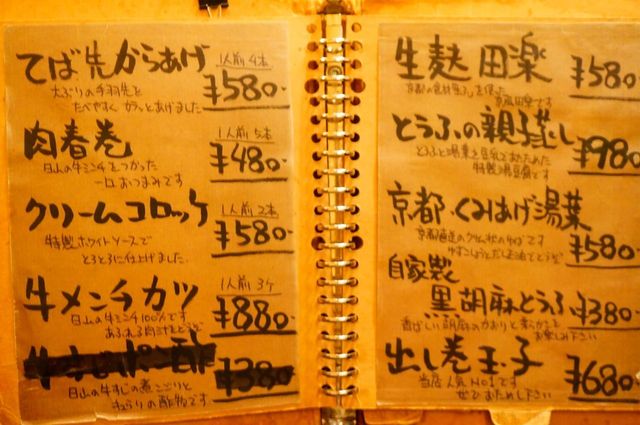 てば先からあげ 1人前4本 ¥580-
大ぶりの手羽先を
たべやすく カラッとあげました
肉春巻 1人前5本 ¥480-
白山の牛ミンチをつかった
一口おつまみです
クリームコロッケ 1人前2本 ¥580-
特製ホワイトソースで
とろとろに仕上げました
牛メンチカツ 1人前3ケ ¥880-
白山の牛ミンチ100%です
あふれる肉汁をどうぞ
ポン酢 ¥380-
白山の牛すじの煮こごりと
の酢物です
生麩田楽 ¥580-
とうふの親子蒸し ¥980-
とうふと湯葉を豆乳で
特製湯豆腐です
京都・くみあげ湯葉 ¥580-
自家製
黒胡麻とうふ ¥380-
香ばしい胡麻のかおりと
お楽しみ下さい
出し巻玉子 ¥680-
当店人気No1です
ぜひおためし下さい